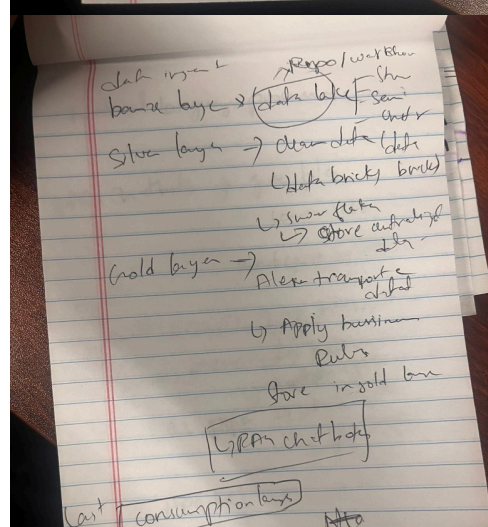 data ingest
Repo/workshop
bronze layer → data lake - Stru
Semi
Silver layer → clean data (data
↳ data bricks bricks)
↳ snowflake
↳ Store centralized
gold layer →
transport
↳ Apply business
Rules
Store in gold layer
↳ RAG chatbots
Last consumption layer